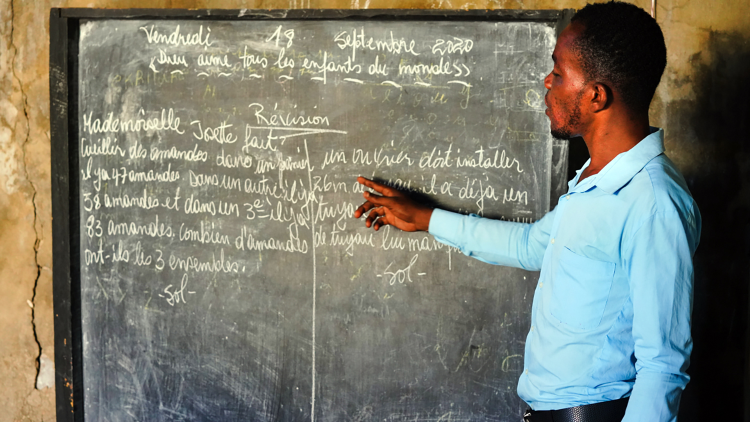 Vendredi 18 Septembre 2020
"Dieu aime tous les enfants du monde"
Révision
Mademoiselle Josette fait
Cueillir des amandes dans un
il y a 47 amandes dans un autre il y a
58 amandes et dans un 3e il y a
83 amandes. Combien d'amandes
ont-ils les 3 ensembles.
-Sol-
un ouvrier doit installer
26m de il a déjà un
tuyau
de tuyau lui
-Sol-